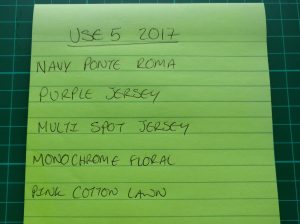 USE 5 2017
NAVY PONTE ROMA
PURPLE JERSEY
MULTI SPOT JERSEY
MONOCHROME FLORAL
PINK COTTON LAWN